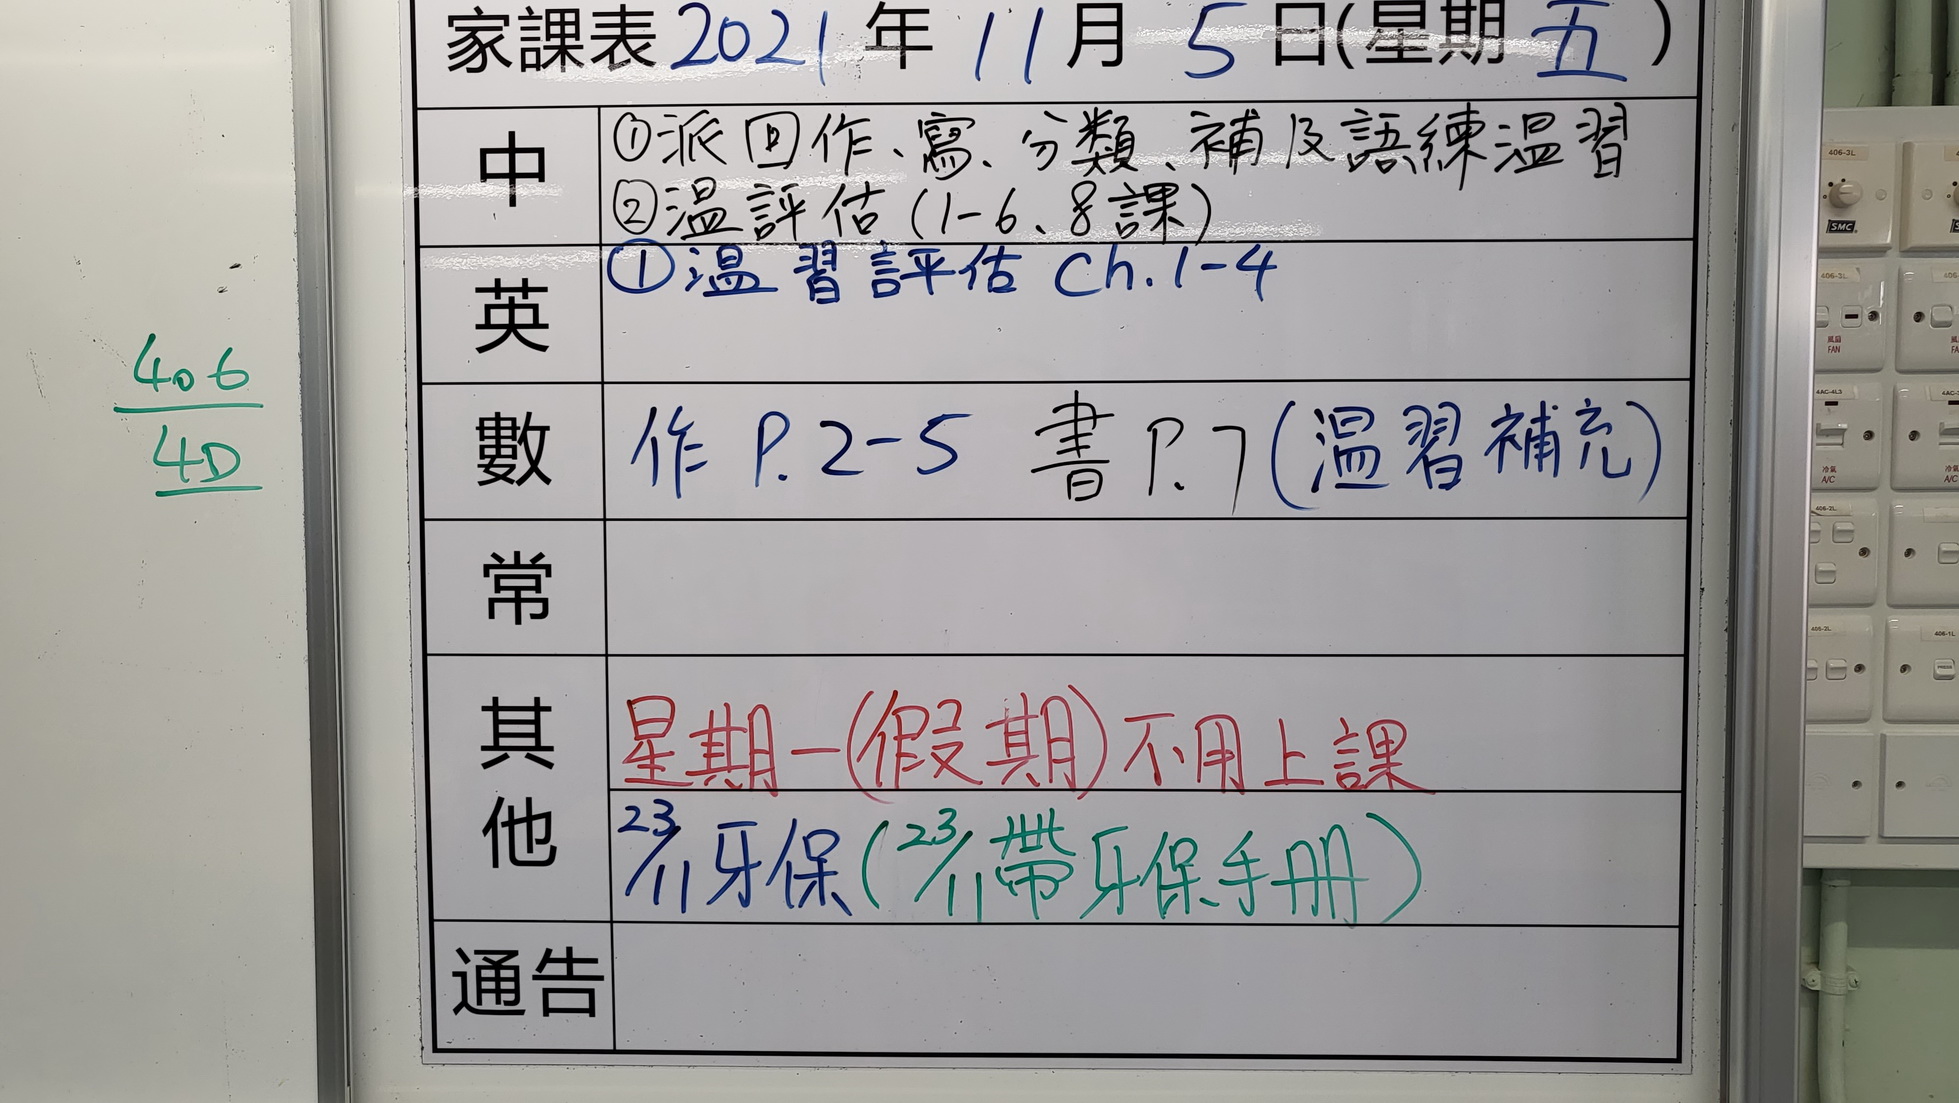 家課表 2021 年 11 月 5 日(星期 五 )
中
①派回作、寫、分類、補及語練溫習
②溫評估(1-6、8課)
英
①溫習評估 Ch.1-4
數
作 P.2-5 書 P.7(溫習補充)
常
其他
星期一(假期)不用上課
23/11牙保(23/11帶牙保手冊)
通告
406
4D
406-3L
SMC
406-3L
風扇
FAN
4AC-4L3
冷氣
A/C
406-2L
406-3L
406-1L
PRESS